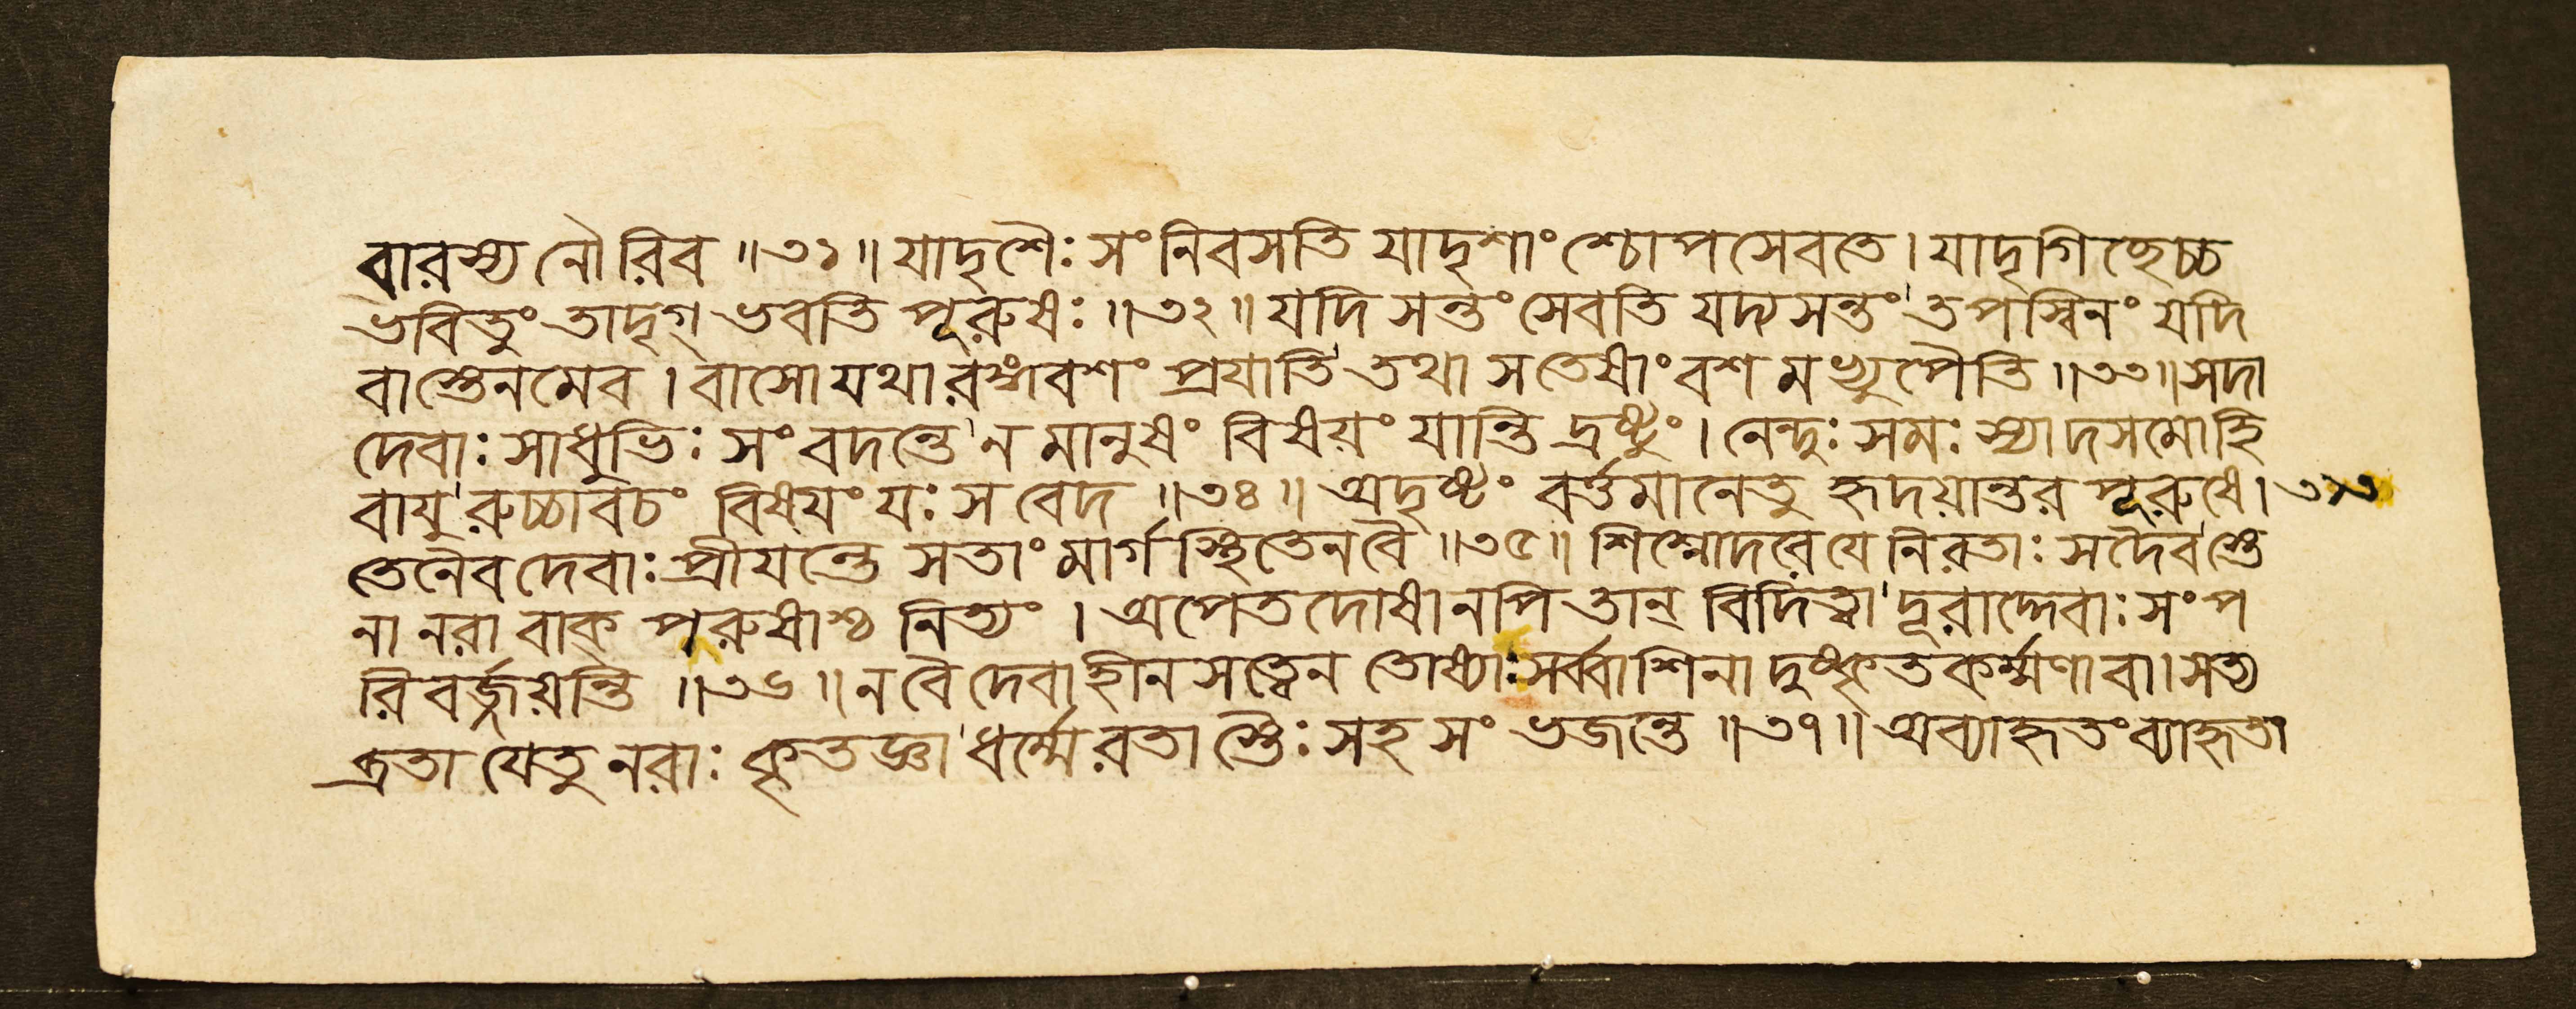 বারস্য নৌরিব ॥৩১॥ যাদৃশৈঃ সংনিবসতি যাদৃশাংশ্চোপসেবতে। যাদৃগিচ্ছেচ্চ
ভবিতুং তাদৃগ্ ভবতি পূরুষঃ ॥৩২॥ যদি সন্তং সেবতি যদ্যসন্তং' তপস্বিনং যদি
বাস্তেনমেব। বাসো যথা রঙ্গবশং প্রযাতি' তথা স তেষাং বশমভ্যুপৈতি ॥৩৩॥ সদা
দেবাঃ সাধুভিঃ সংবদন্তে' ন মানুষং বিষয়ং যান্তি দ্রষ্টুং। নেন্দুঃ সমঃ স্যাদসমো হি
বাযু'রুচ্চাবচং বিষয়ং যঃ স বেদ ॥৩৪॥ অদৃষ্টং বর্ত্তমানেতু হৃদয়ান্তর পূরুষে।
তেনৈব দেবাঃ প্রীয়ন্তে সতাং মার্গস্থিতেন বৈ ॥৩৫॥ শিশ্নোদরে যে নিরতাঃ সদৈব' স্তে
না নরা বাক্ পরুষাশ্চ নিত্যং। অপেতদোষানপি তান্ বিদিত্বা' দূরাদ্দেবাঃ সংপ
রিবর্জ্জয়ন্তি ॥৩৬॥ ন বৈ দেবা হীনসত্ত্বেন তোষ্যাঃ সর্ব্বাশিনা দুষ্কৃতকর্ম্মণা বা। সত্য
ব্রতা যেতু নরাঃ কৃতজ্ঞা' ধর্ম্মে রতাস্তৈঃ সহ সংভজন্তে ॥৩৭॥ অব্যাহৃতং ব্যাহৃতা